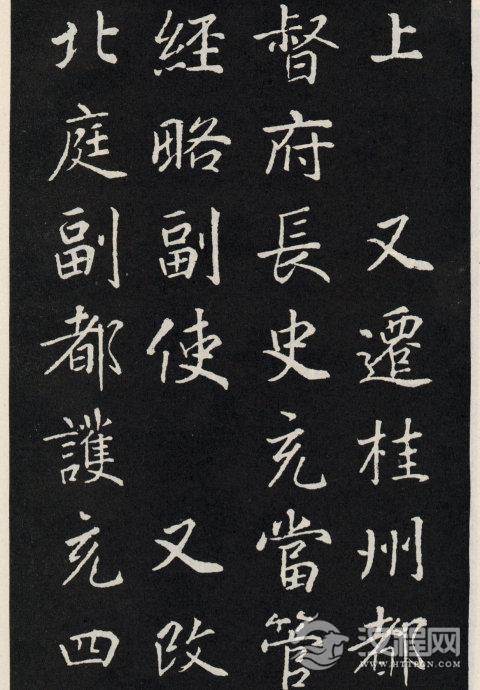 上 又遷桂州都
督府長史充當管
經略副使 又改
北庭副都護充四
WWW.HTTPCN.COM